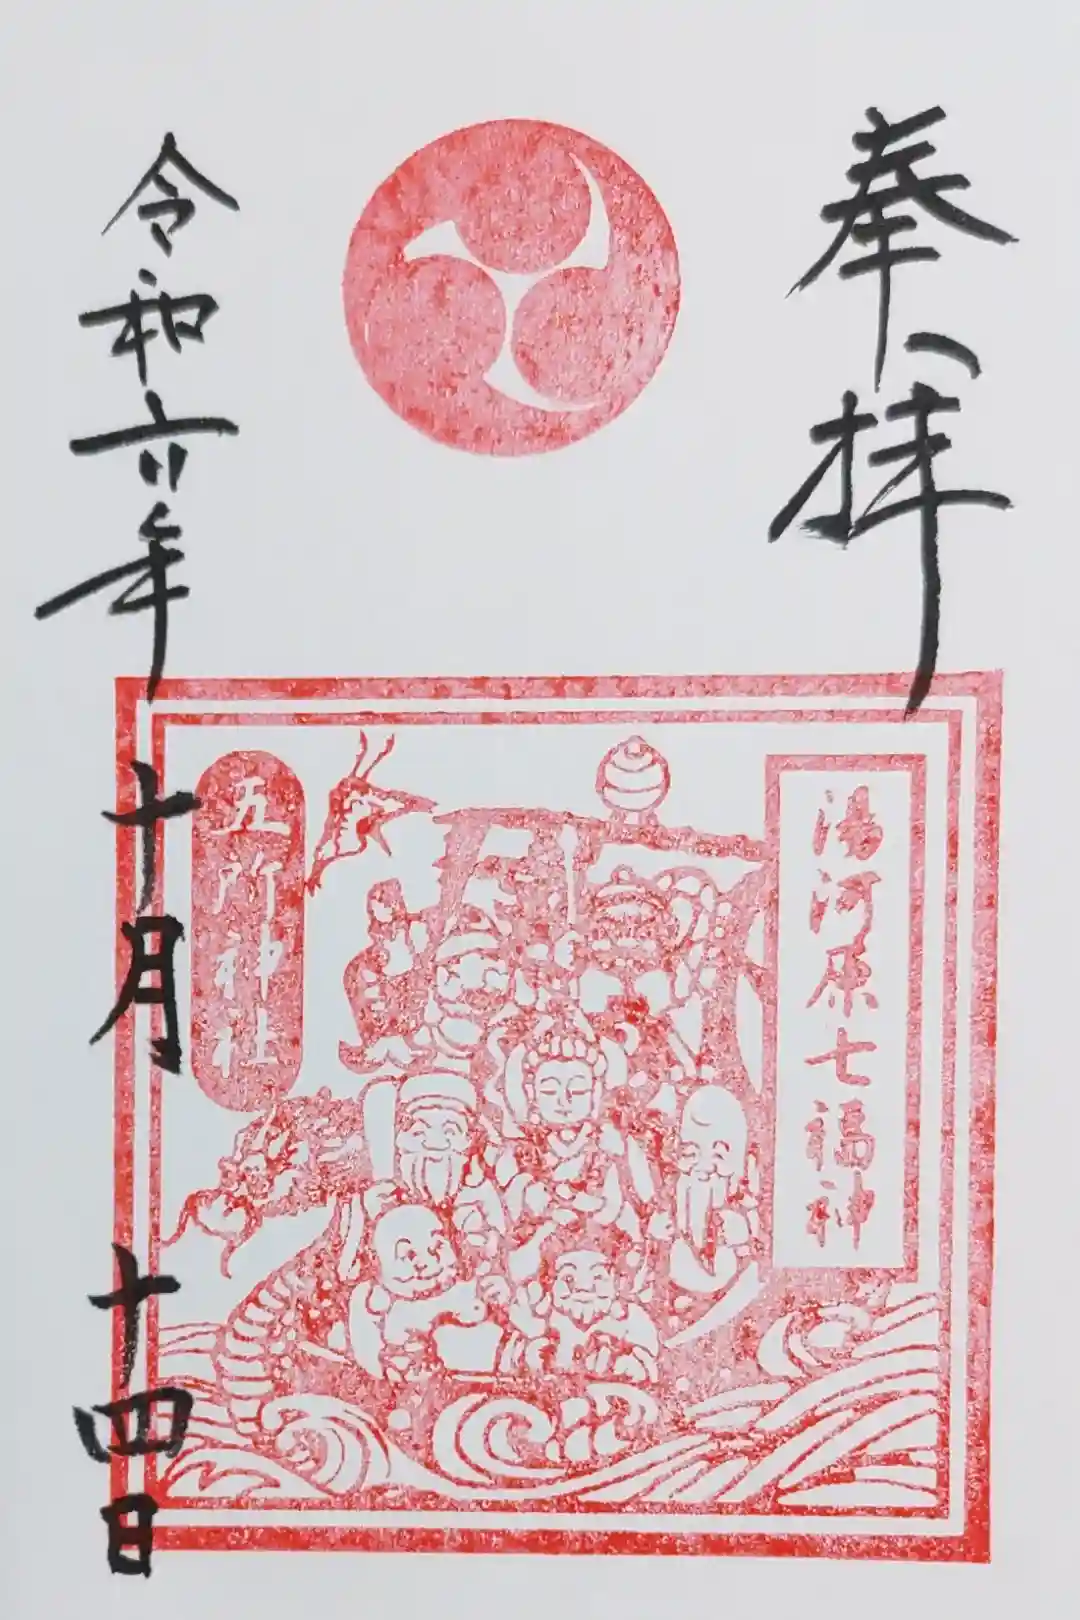 奉拝
湯河原七福神
五所神社
令和六年十月十四日